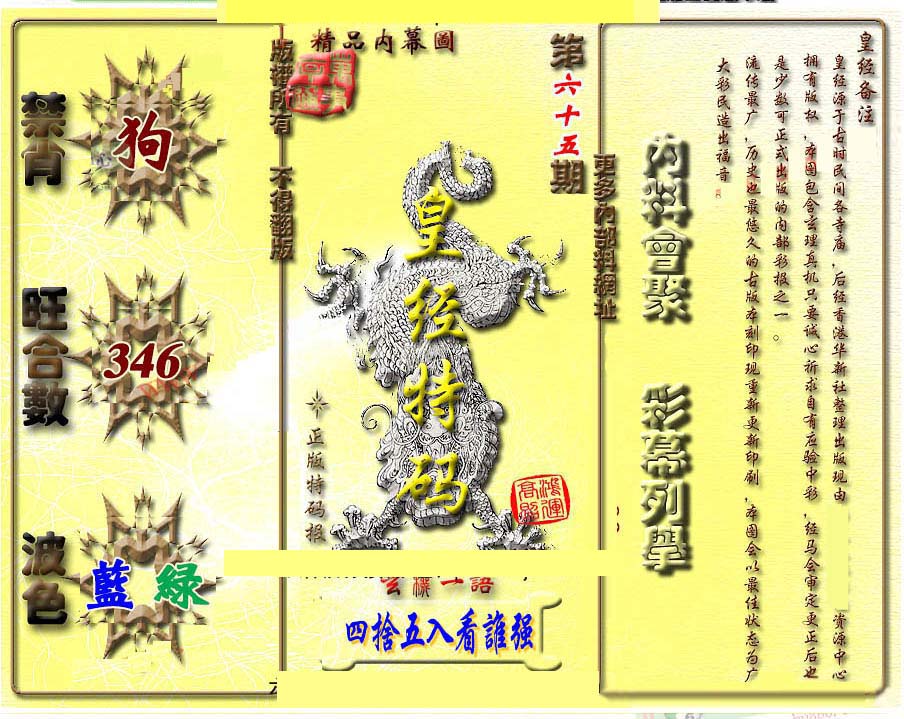 精品内幕圖
第六十五期
版權所有 不得翻版
更多內部料網址
禁肖
狗
旺合數
346
波色
藍 綠
皇经特码
正版特码报
鴻運高照
四捨五入看誰强
內料會聚
彩幕列舉
皇经备注
皇经源于古时民间各寺庙,后经香港华新社整理出版现由
资源中心
拥有版权,本图包含玄理真机只要诚心祈求自有应验中彩,经马会审定更正后也
是少数可正式出版的内部彩报之一。
流传最广,历史也最悠久的古版本刻印现重新更新印刷,本图会以最佳状态为广
大彩民造出福音